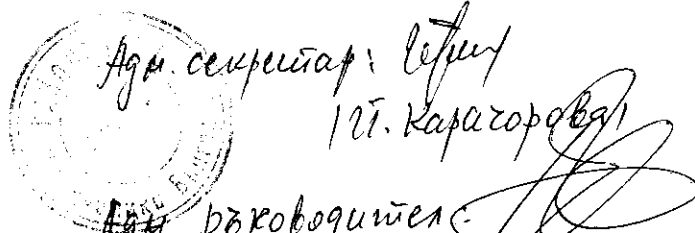 Адм. секретар:
/П. Карачорова/
Адм. ръководител: